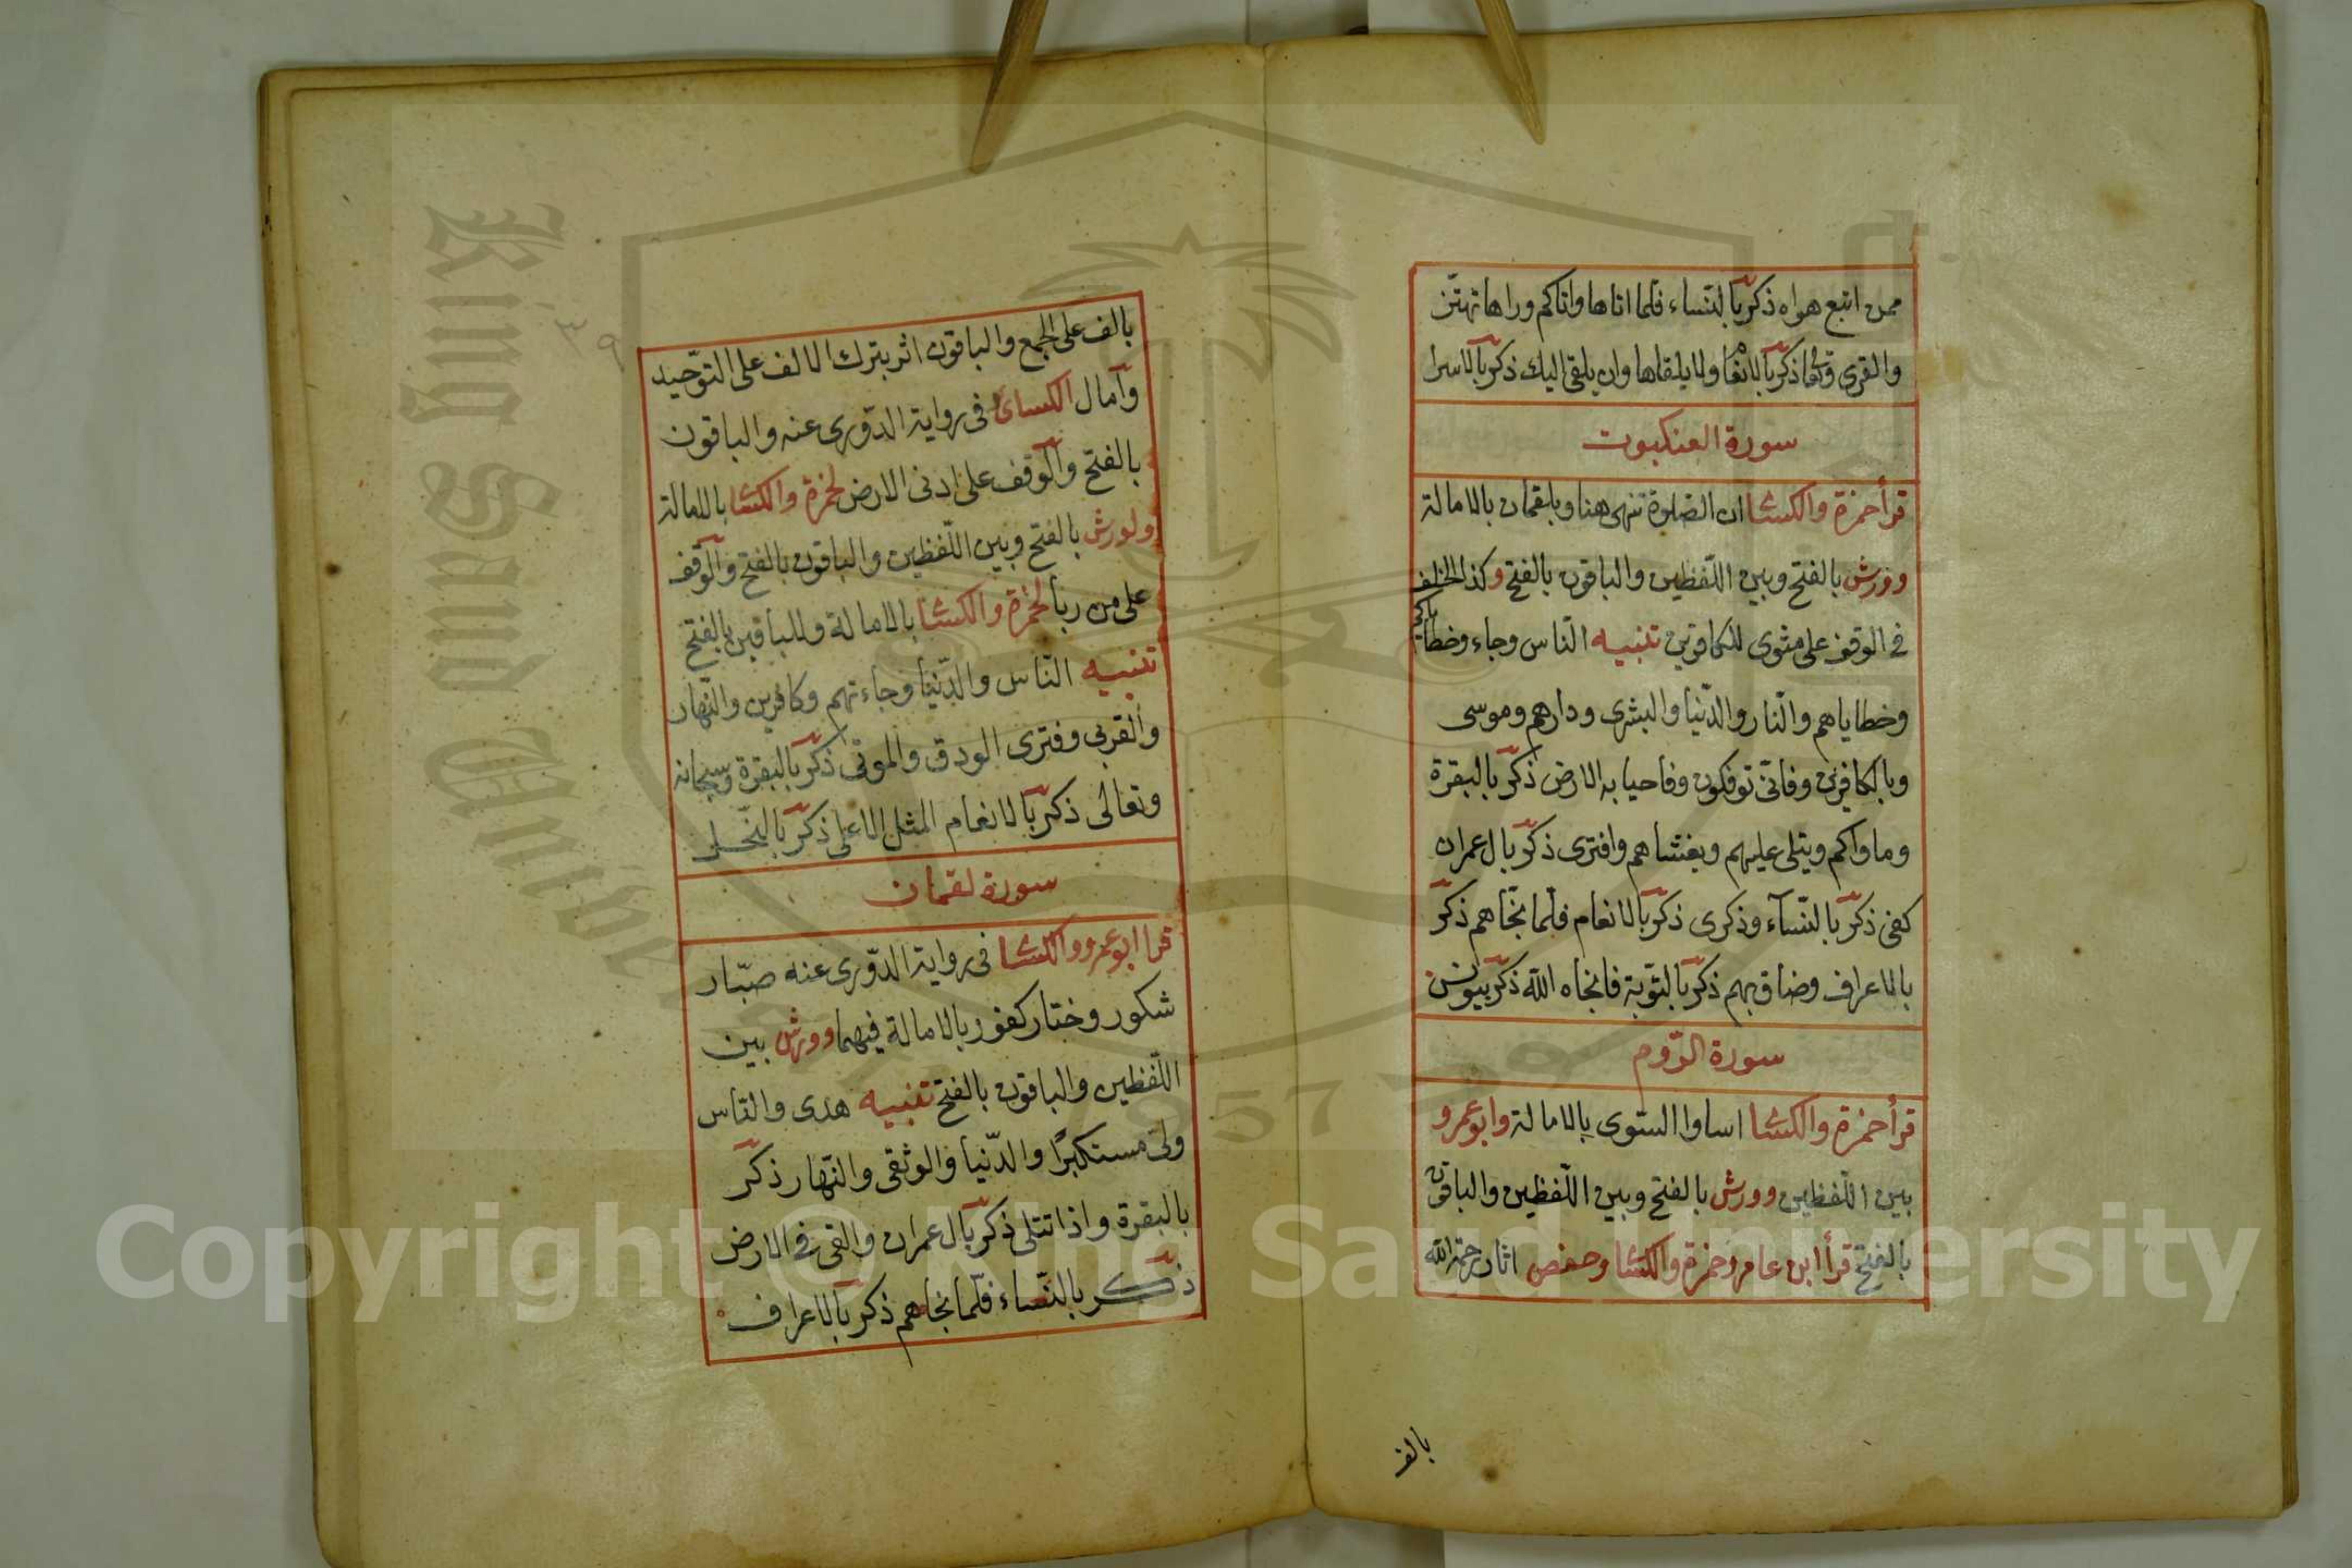 ممن اتبع هواه ذكر بالنساء فلما اتاها واتاكم وراها تهتز
والقرى ذكر بالانعام ولا يلقاها وان يلقى اليك ذكر بالاسرا
سورة العنكبوت
قرأ حمزة والكسا ان الصلوة تنهى هنا وبلقمان بالامالة
وورش بالفتح وبين اللفظين والباقون بالفتح وكذا الخلف
في الوقف على مثوى للكافرين تنبيه الناس وجاء وخطاياكم
وخطاياهم والنار والدنيا والبشرى ودارهم وموسى
وبالكافرين وفانى توفكون وفاحيا به الارض ذكر بالبقرة
وماواكم ويتلى عليهم ويغشاهم وافترى ذكر بال عمران
كفى ذكر بالنسآء وذكرى ذكر بالانعام فلما نجاهم ذكر
بالاعراف وضاق بهم ذكر بالتوبة فانجاه الله ذكر بيونس
سورة الروم
قرأ حمزة والكسا اساوا السوى بالامالة وابو عمرو
بين اللفظين وورش بالفتح وبين اللفظين والباقون
بالفتح قرأ ابن عامر وحمزة والكسا وحفص اثار رحمة الله
بالف
٣٩
بالف على الجمع والباقون اثر بترك الالف على التوحيد
وآمال الكسائ في رواية الدورى عنه والباقون
بالفتح والوقف على ادنى الارض لحمزة والكسا بالامالة
ولورش بالفتح وبين اللفظين والباقون بالفتح والوقف
على من ربا لحمزة والكسا بالامالة وللباقين بالفتح
تنبيه الناس والدنيا وجاءتهم وكافرين والنهار
والقربى وفترى الودق والموتى ذكر بالبقرة وسبحانه
وتعالى ذكر بالانعام المثل الاعلى ذكر بالنحل
سورة لقمان
قرا ابو عمرو والكسا في رواية الدورى عنه صبار
شكور وختار كفور بالامالة فيهما وورش بين
اللفظين والباقون بالفتح تنبيه هدى والناس
ولى مستكبرا والدنيا والوثقى والنهار ذكر
بالبقرة واذا تتلى ذكر بال عمران والقى في الارض
ذكر بالنساء فلما نجاهم ذكر بالاعراف
King Saud Unive
1957
Copyright © King Saud University